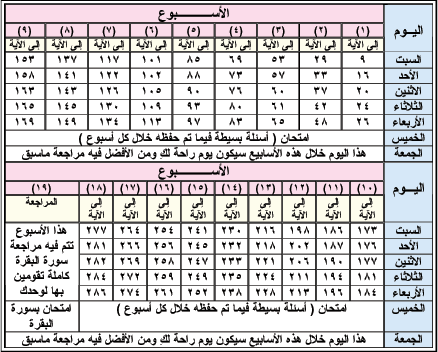 اليوم الأسبوع
(١) (٢) (٣) (٤) (٥) (٦) (٧) (٨) (٩)
إلى الآية إلى الآية إلى الآية إلى الآية إلى الآية إلى الآية إلى الآية إلى الآية إلى الآية
السبت ٩ ٢٩ ٥٣ ٦٩ ٨٥ ١٠١ ١١٧ ١٣٧ ١٥٣
الأحد ١٦ ٣٣ ٥٧ ٧٣ ٨٨ ١٠٢ ١٢٢ ١٤١ ١٥٨
الاثنين ٢٠ ٣٧ ٦٠ ٧٦ ٩٠ ١٠٥ ١٢٦ ١٤٣ ١٦٣
الثلاثاء ٢٤ ٤٢ ٦١ ٨٠ ٩٣ ١٠٩ ١٣٠ ١٤٥ ١٦٥
الأربعاء ٢٦ ٤٨ ٦٥ ٨٣ ٩٧ ١١٣ ١٣٤ ١٤٩ ١٦٩
الخميس امتحان ( أسئلة بسيطة فيما تم حفظه خلال كل أسبوع )
الجمعة هذا اليوم خلال هذه الأسابيع سيكون يوم راحة لك ومن الأفضل فيه مراجعة ماسبق
اليوم الأسبوع
(١٠) (١١) (١٢) (١٣) (١٤) (١٥) (١٦) (١٧) (١٨) (١٩)
إلى الآية إلى الآية إلى الآية إلى الآية إلى الآية إلى الآية إلى الآية إلى الآية إلى الآية المراجعة
السبت ١٧٣ ١٨٦ ١٩٨ ٢١٦ ٢٣٠ ٢٤١ ٢٥٤ ٢٦٤ ٢٧٧ هذا الأسبوع
الأحد ١٧٦ ١٨٧ ٢٠٢ ٢١٨ ٢٣٢ ٢٤٥ ٢٥٦ ٢٦٦ ٢٨١ تتم فيه مراجعة
الاثنين ١٧٧ ١٩٠ ٢٠٦ ٢٢١ ٢٣٣ ٢٤٧ ٢٥٨ ٢٦٩ ٢٨٢ سورة البقرة
الثلاثاء ١٨١ ١٩٤ ٢١١ ٢٢٤ ٢٣٥ ٢٤٩ ٢٥٩ ٢٧٢ ٢٨٤ كاملة تقومين
الأربعاء ١٨٤ ١٩٦ ٢١٣ ٢٢٨ ٢٣٨ ٢٥٢ ٢٦١ ٢٧٤ ٢٨٦ بها لوحدك
الخميس امتحان ( أسئلة بسيطة فيما تم حفظه خلال كل أسبوع ) امتحان بسورة
البقرة
الجمعة هذا اليوم خلال هذه الأسابيع سيكون يوم راحة لك ومن الأفضل فيه مراجعة ماسبق